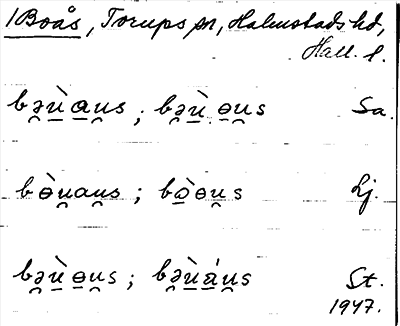 1Boås, Torups sn, Halmstads hd,
Hall. l.
bə̯ṳ̀a̲u̯s ; bə̯ṳ̀ ɵ̯u̯s Sa.
bɵ̀u̯au̯s ; bò̲ɵu̯s Lj.
bə̯ṳ̀ɵ̯u̯s ; bə̯ṳ̀áu̯s St.
1947.